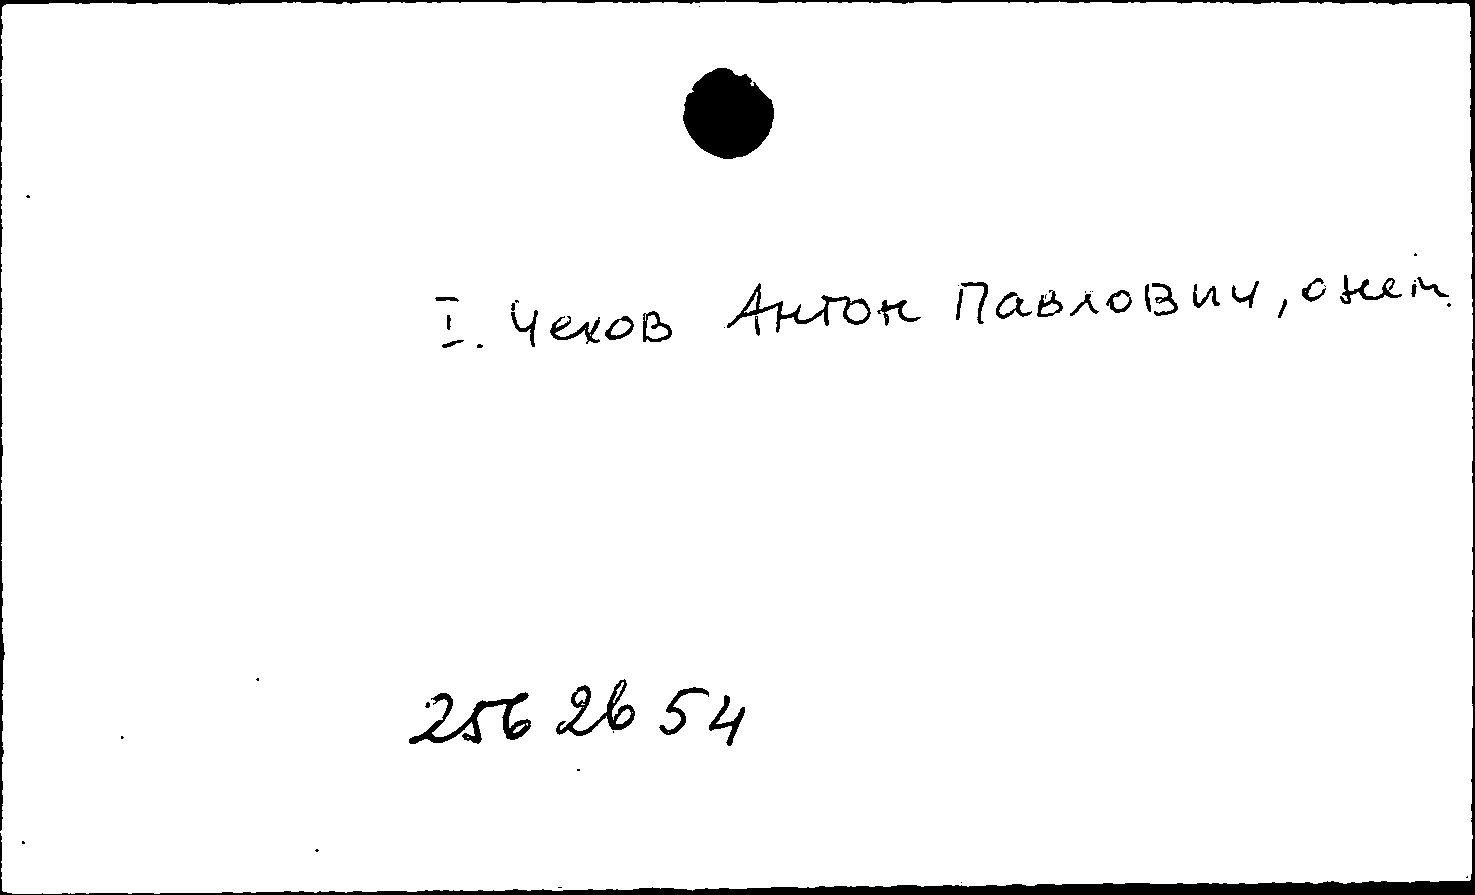 I. Чехов Антон Павлович, о нем.
256 26 54